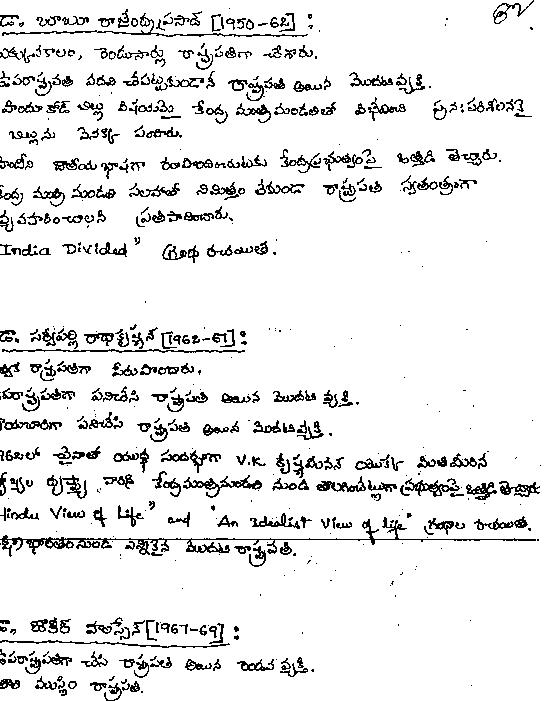 డా. బాబూ రాజేంద్రప్రసాద్ [1950-62] :
ఎక్కువకాలం, రెండుసార్లు రాష్ట్రపతిగా చేశారు.
ఉపరాష్ట్రపతి పదవి చేపట్టకుండానే రాష్ట్రపతి అయిన మొదటి వ్యక్తి.
హిందూ కోడ్ బిల్లు విషయమై కేంద్ర మంత్రిమండలితో విభేదించి పునఃపరిశీలనకై
బిల్లును వెనక్కి పంపారు.
హిందీని జాతీయ భాషగా రూపొందించుటకు కేంద్రప్రభుత్వంపై ఒత్తిడి తెచ్చారు.
కేంద్ర మంత్రి మండలి సలహాతో నిమిత్తం లేకుండా రాష్ట్రపతి స్వతంత్రంగా
వ్యవహరించాలని ప్రతిపాదించారు.
India Divided" గ్రంథ రచయిత.
డా. సర్వేపల్లి రాధాకృష్ణన్ [1962-67] :
రాష్ట్రపతిగా పేరుపొందారు.
ఉపరాష్ట్రపతిగా పనిచేసి రాష్ట్రపతి అయిన మొదటి వ్యక్తి.
రాయబారిగా పనిచేసి రాష్ట్రపతి అయిన మొదటివ్యక్తి.
1962లో చైనాతో యుద్ధ సందర్భంగా V.K. కృష్ణమీనన్ యొక్క మితిమీరిన
దృష్ట్యా వారిని కేంద్రమంత్రిమండలి నుండి తొలగించేట్లుగా ప్రభుత్వంపై ఒత్తిడి తెచ్చారు
Hindu View of Life" and "An Idealist View of Life" గ్రంథాల రచయిత.
దక్షిణ భారతం నుండి ఎన్నికైన మొదటి రాష్ట్రపతి.
డా. జాకీర్ హుస్సేన్ [1967-69] :
ఉపరాష్ట్రపతిగా చేసి రాష్ట్రపతి అయిన రెండవ వ్యక్తి.
తొలి ముస్లిం రాష్ట్రపతి.